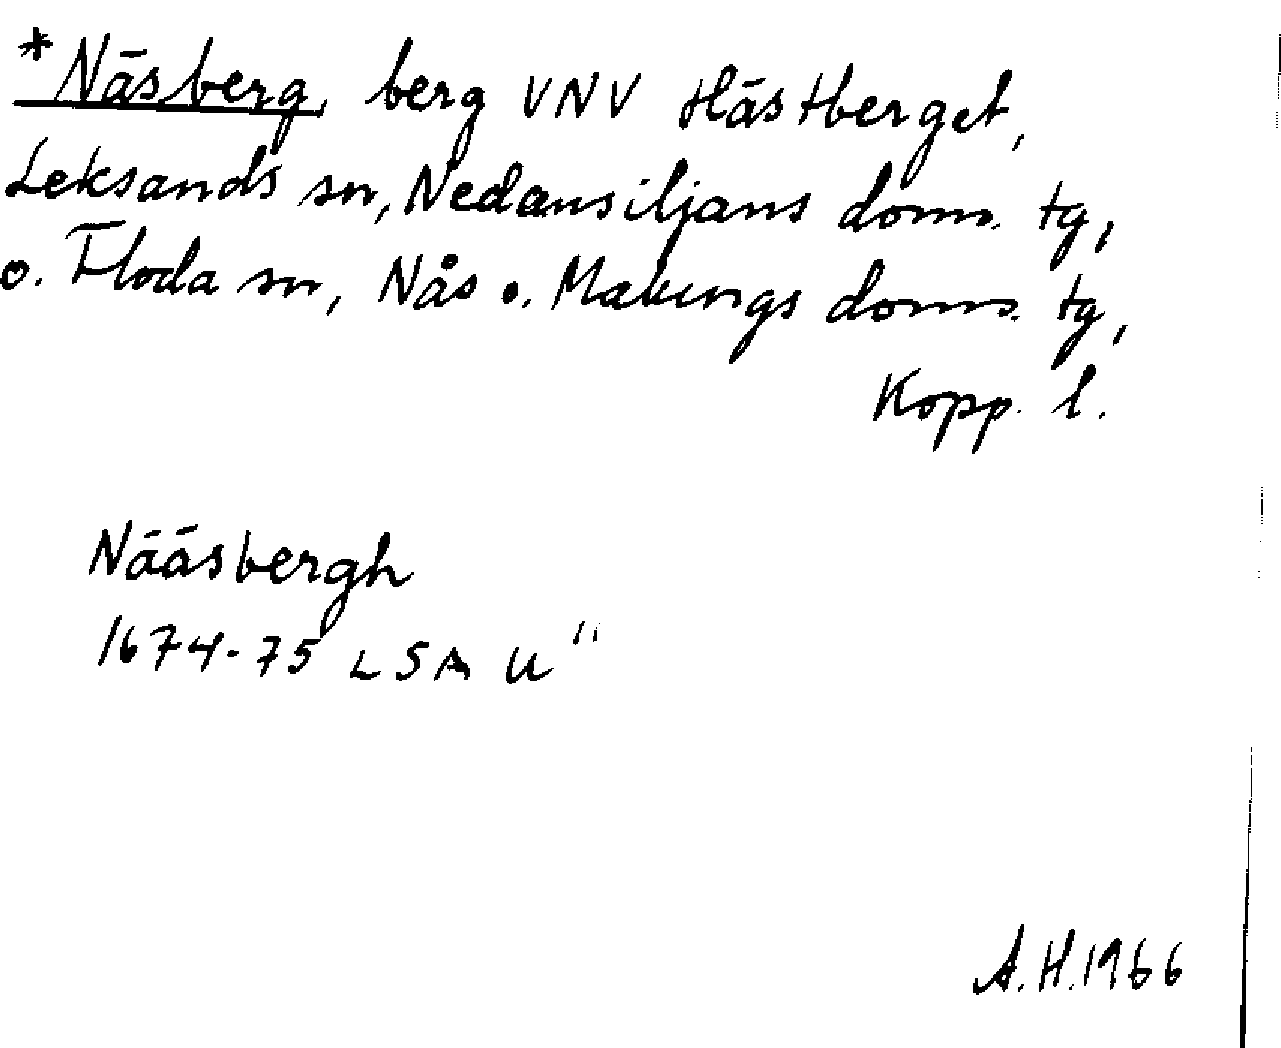 *Näsberg, berg VNV Hästberget,
Leksands sn, Nedansiljans doms. tg,
o. Floda sn, Nås o. Malungs doms. tg,
Kopp. l.
Nääsbergh
1674-75 LSA U"
A.H.1966